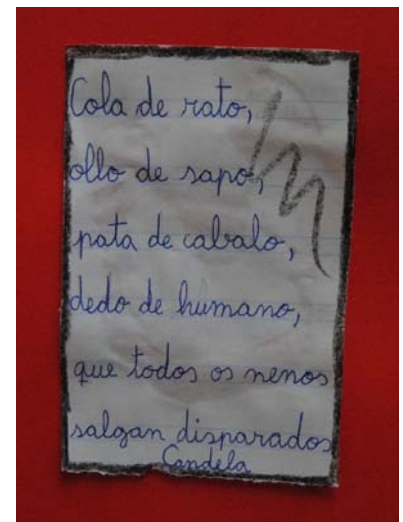 Cola de rato,
ollo de sapo,
pata de cabalo,
dedo de humano,
que todos os nenos
salgan disparados
Candela